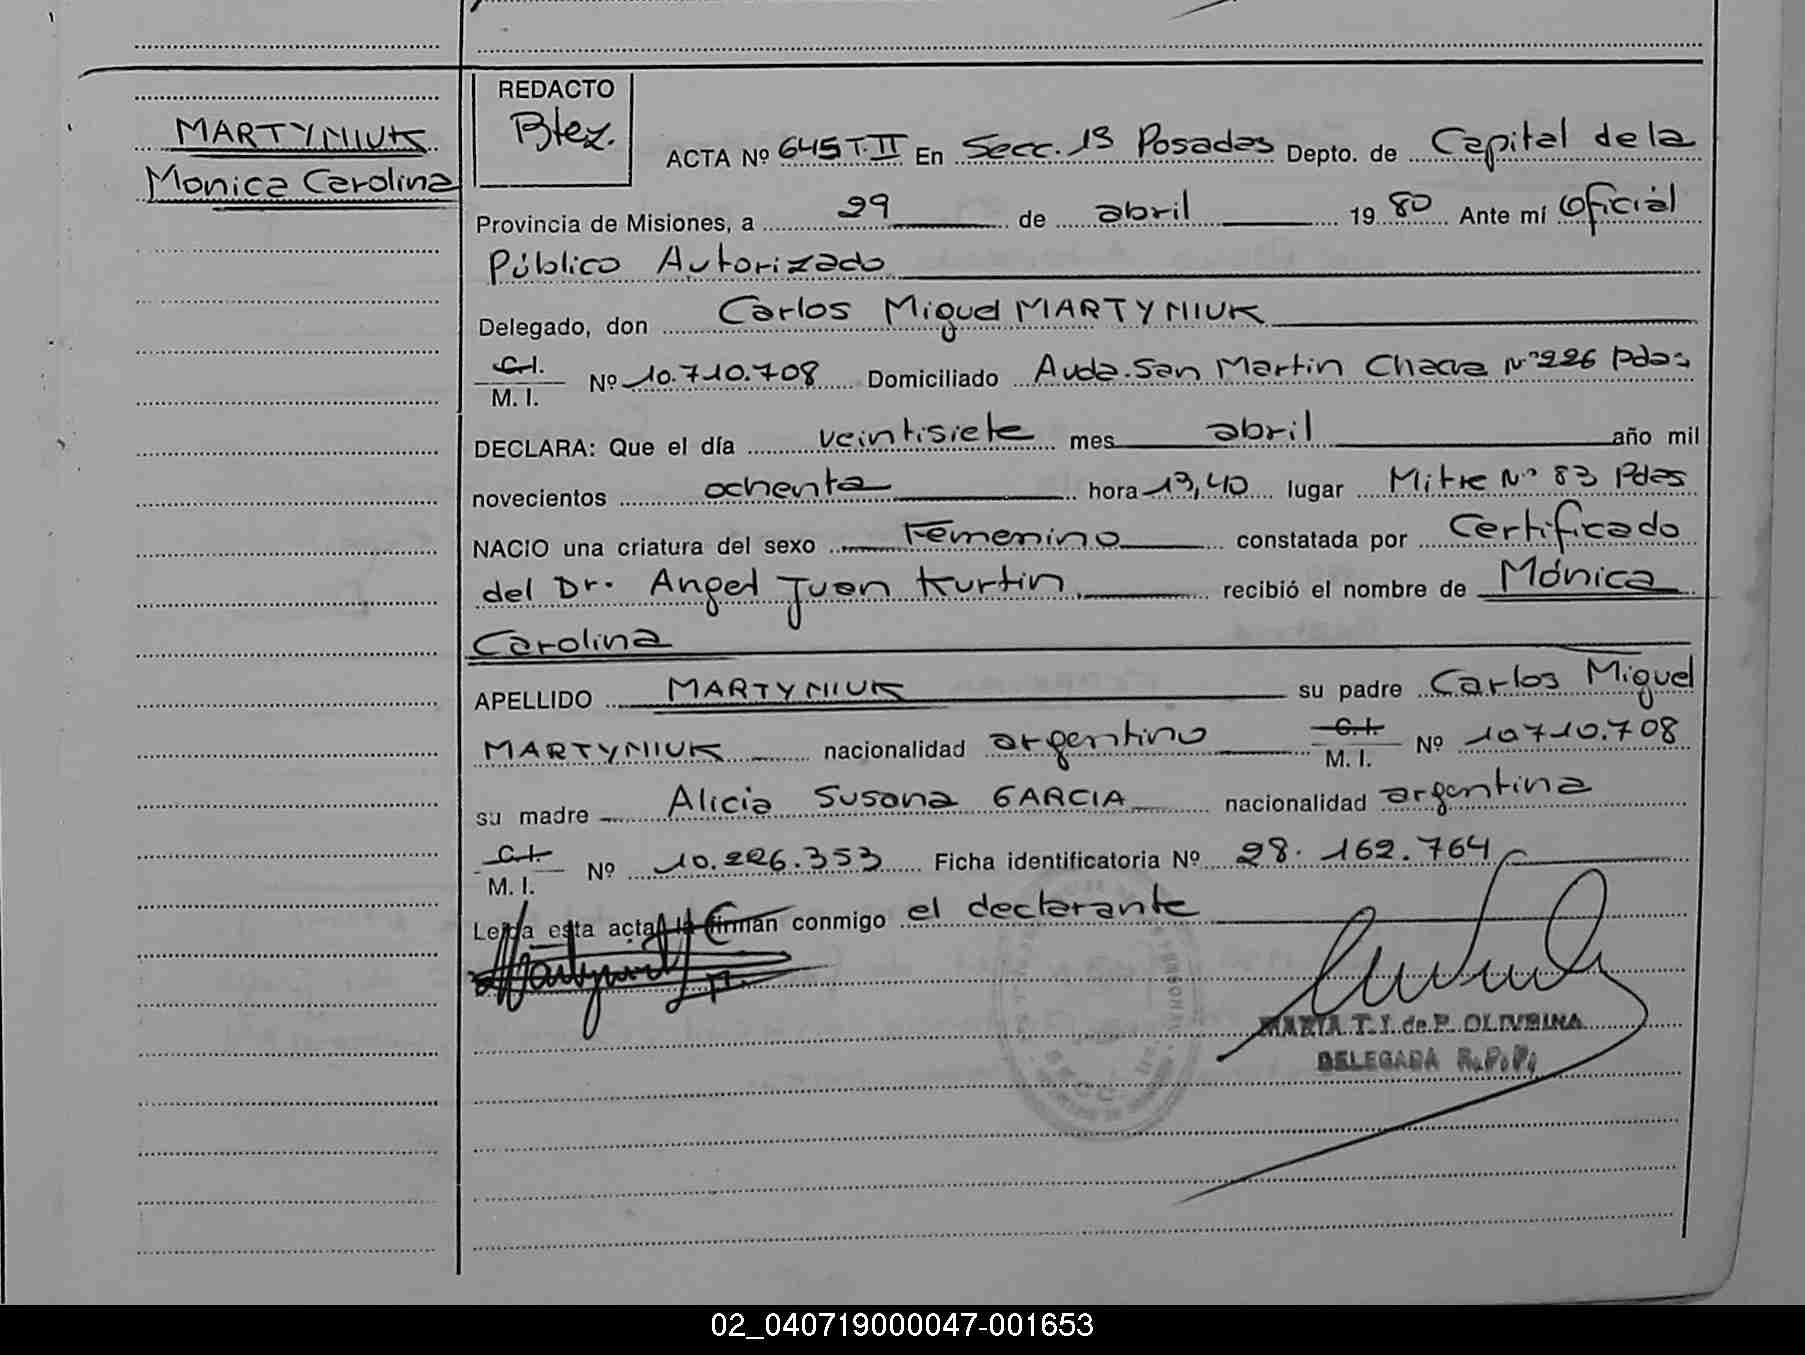 REDACTO
Btez.
MARTYNIUK
Monica Carolina
ACTA Nº 645 T.II En Secc. 1ª Posadas Depto. de Capital de la
Provincia de Misiones, a 29 de abril 19 80 Ante mí Oficial
Público Autorizado
Delegado, don Carlos Miguel MARTYNIUK
C.I.
M. I. Nº 10.710.708 Domiciliado Avda. San Martin Chacra Nº 226 Pdas
DECLARA: Que el día veintisiete mes abril año mil
novecientos ochenta hora 13,40 lugar Mitre Nº 83 Pdas
NACIO una criatura del sexo Femenino constatada por Certificado
del Dr. Angel Juan Kurtin recibió el nombre de Mónica
Carolina
APELLIDO MARTYNIUK su padre Carlos Miguel
MARTYNIUK nacionalidad argentino C.I. M. I. Nº 10710.708
su madre Alicia Susana GARCIA nacionalidad argentina
C.I.
M. I. Nº 10.226.353 Ficha identificatoria Nº 28.162.764
Leída esta acta la firman conmigo el declarante
MARIA T. I. de P. OLIVEIRA
DELEGADA R.P.P.
02_040719000047-001653